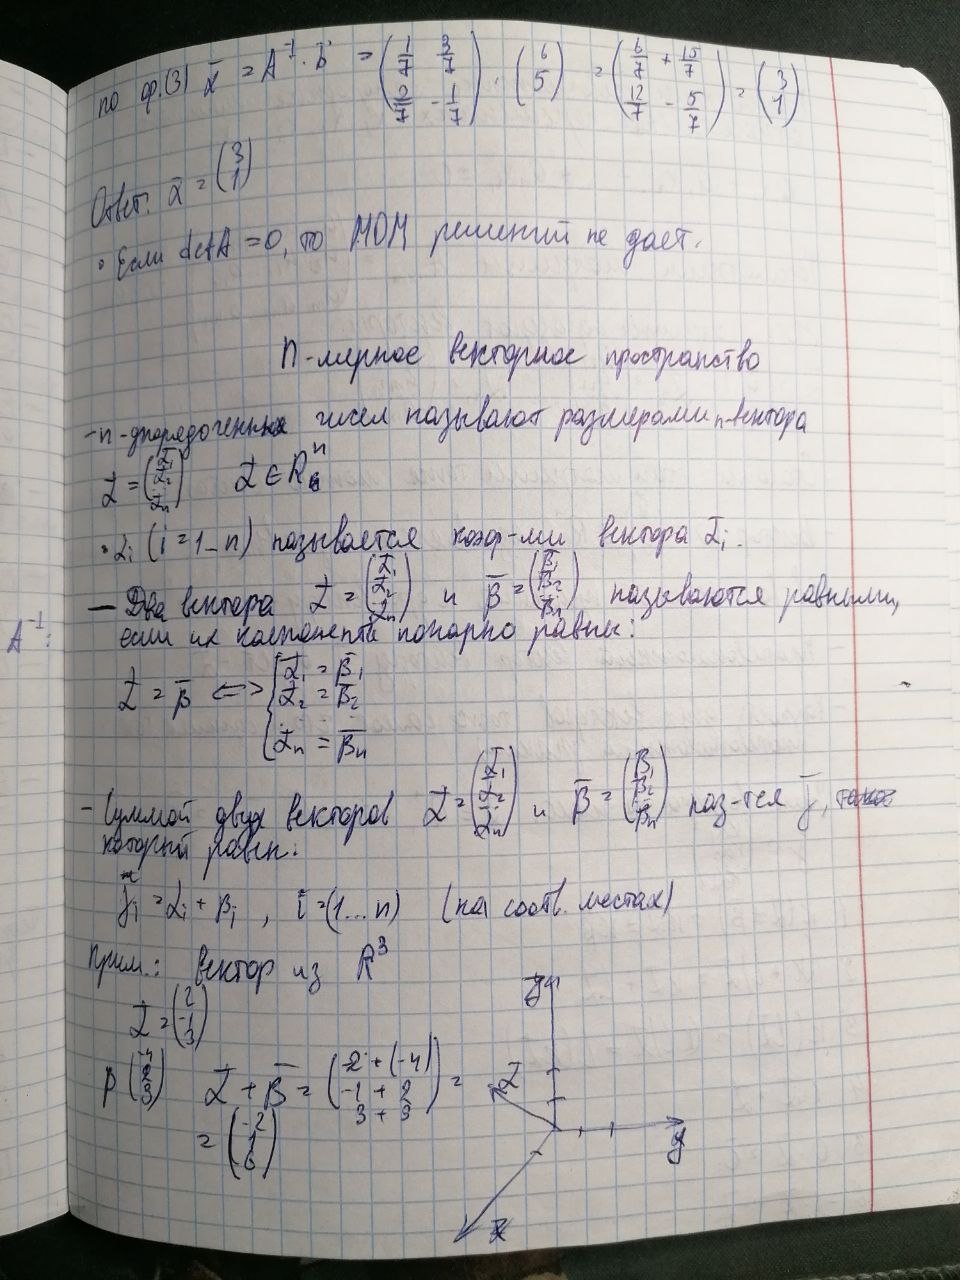 по ф.(3) x̄ = A⁻¹ · b̄ = (1/7 3/7; 2/7 -1/7) · (6; 5) = (6/7 + 15/7; 12/7 - 5/7) = (3; 1)
Ответ: x̄ = (3; 1)
• Если detA = 0, то МОМ решений не дает.
n-мерное векторное пространство
- n-упорядоченных чисел называют размерами n-вектора
ᾱ = (ᾱ₁; ᾱ₂; ᾱn) ᾱ ∈ Rⁿ
• αi (i = 1 - n) называется коэф-ми вектора ᾱi.
— Два вектора ᾱ = (ᾱ₁; ᾱ₂; ᾱn) и β̄ = (β̄₁; β̄₂; β̄n) называются равными,
если их компоненты попарно равны:
A⁻¹:
ᾱ = β̄ <=> { ᾱ₁ = β̄₁
ᾱ₂ = β̄₂
ᾱn = β̄n
- Суммой двух векторов ᾱ = (ᾱ₁; ᾱ₂; ᾱn) и β̄ = (β̄₁; β̄₂; β̄n) наз-тся γ̄,
который равен:
γi = αi + βi, i = (1...n) (на соотв. местах)
Прим.: вектор из R³
ᾱ = (2; -1; 3)
β (-4; 2; 3) ᾱ + β̄ = (2 + (-4); -1 + 2; 3 + 3) =
= (-2; 1; 6)
z
ᾱ
y
x